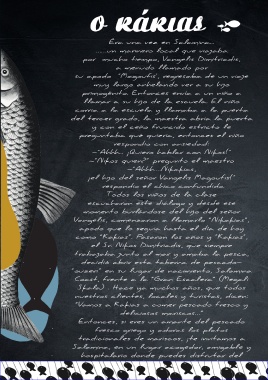 ο κάκιας
Era una vez en Salamina...
.....un marinero local que viajaba
por mucho tiempo, Vangelis Dimitriadis,
a menudo llamado por
su apodo "Magoutis", regresaba de un viaje
muy largo anhelando ver a su hijo
primogenito. Entonces envia a un niño a
llamar a su hijo de la escuela. El niño
corria a la escuela y llamaba a la puerta
del tercer grado, la maestra abria la puerta
y con el ceño fruncido estricto le
preguntaba que queria, entonces el niño
respondia con ansiedad:
-"Ahhh.. ¡Quiero hablar con Nifkas!"
-"Nifkas quien?" pregunto el maestro
-"Ahhh.. Nifkakias,
¡el hijo del señor Vangelis Magoutis!"
respondia el chico confundido.
Todos los niños de la clase
escuchaban este dialogo y desde ese
momento burlandose del hijo del señor
Vangelis, comenzaron a llamarlo "Nifkakias",
apodo que lo seguia hasta el dia de hoy
como "Kakias". Pasaron los años y "Kakias",
el Sr. Nifkas Dimitriadis, que siempre
trabajaba junto al mar y amaba la pesca,
decidio abrir esta taberna de pescado-
en su lugar de nacimiento, Salamina
frente a la "Gran Escalera" (Megali
Skala). Hace ya muchos años, que todos
nuestros clientes, locales y turistas, dicen:
"Vamos a Kakias a comer pescado fresco y
deliciosos mariscos..."
Entonces, si eres un amante del pescado
fresco griego y adoras los platos
tradicionales de mariscos, ¡te invitamos a
Salamina, en un lugar acogedor, amigable y
hospitalario donde puedes disfrutar del